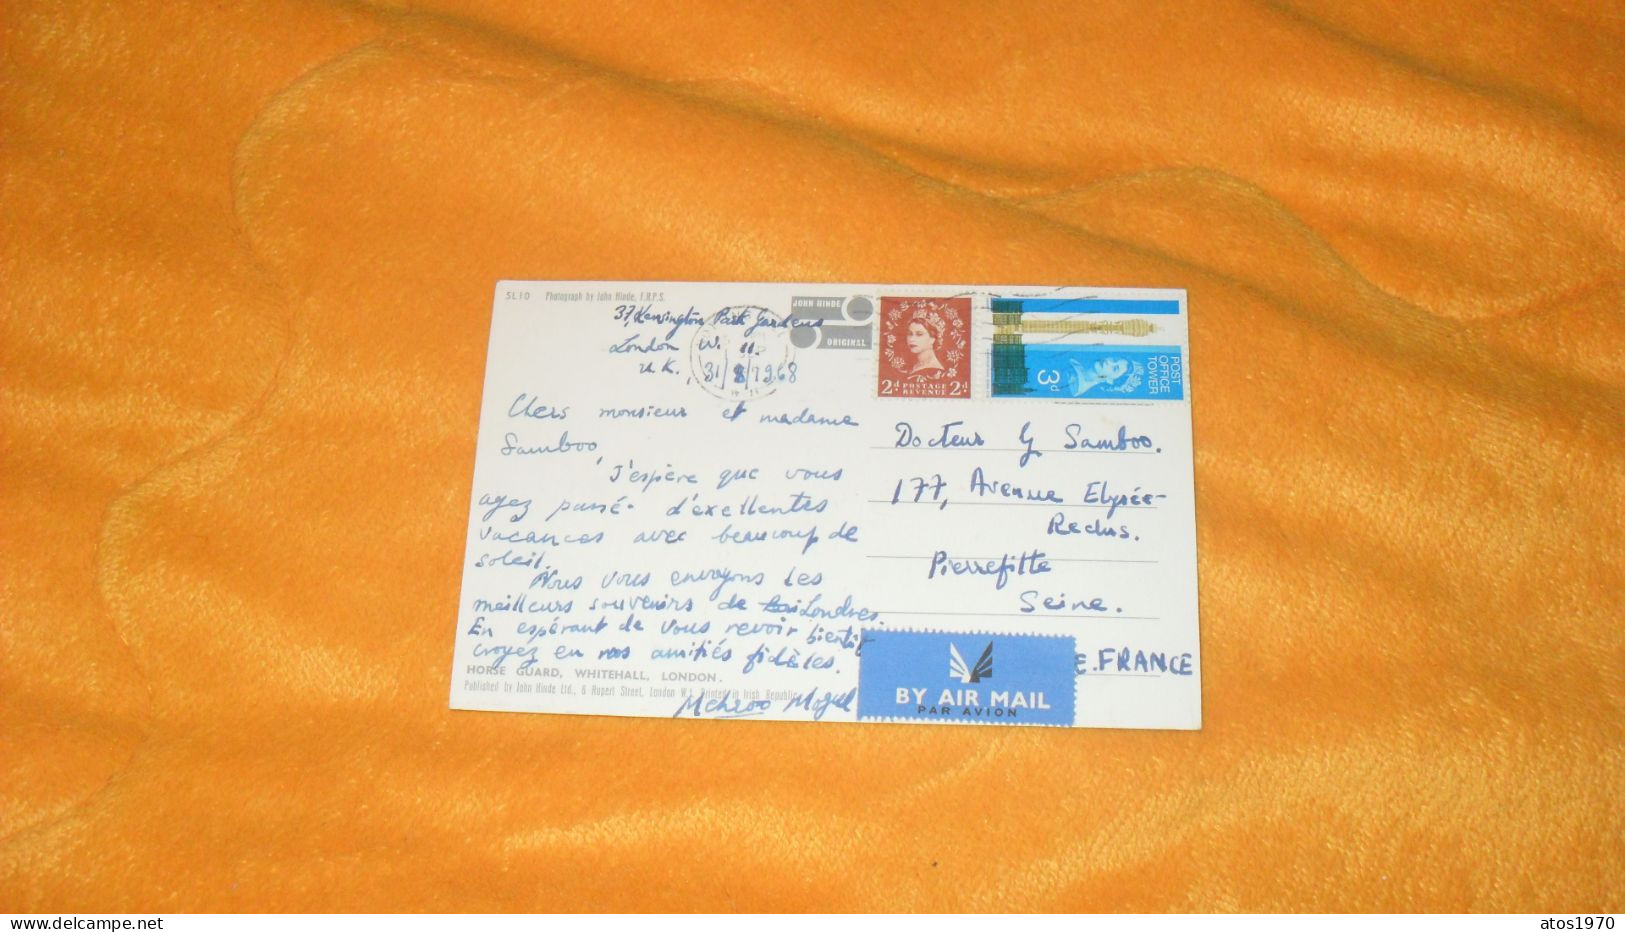 SL10 Photograph by John Hinde, F.R.P.S.
37, Kensington Park Gardens
London W. 11.
U.K. 31/8/1968
JOHN HINDE
ORIGINAL
Chers monsieur et madame
Samboo,
J'espère que vous
ayez passé d'excellentes
vacances avec beaucoup de
soleil.
Nous vous envoyons les
meilleurs souvenirs de Londres.
En espérant de vous revoir bientôt
croyez en nos amitiés fidèles.
HORSE GUARD, WHITEHALL, LONDON.
Published by John Hinde Ltd., 6 Rupert Street, London W.1. Printed in Irish Republic
2d POSTAGE REVENUE 2d
POST OFFICE TOWER
3d
Docteur G Samboo.
177, Avenue Elysée-
Reclus.
Pierrefitte
Seine.
E. FRANCE
BY AIR MAIL
PAR AVION
www.delcampe.net
atos1970